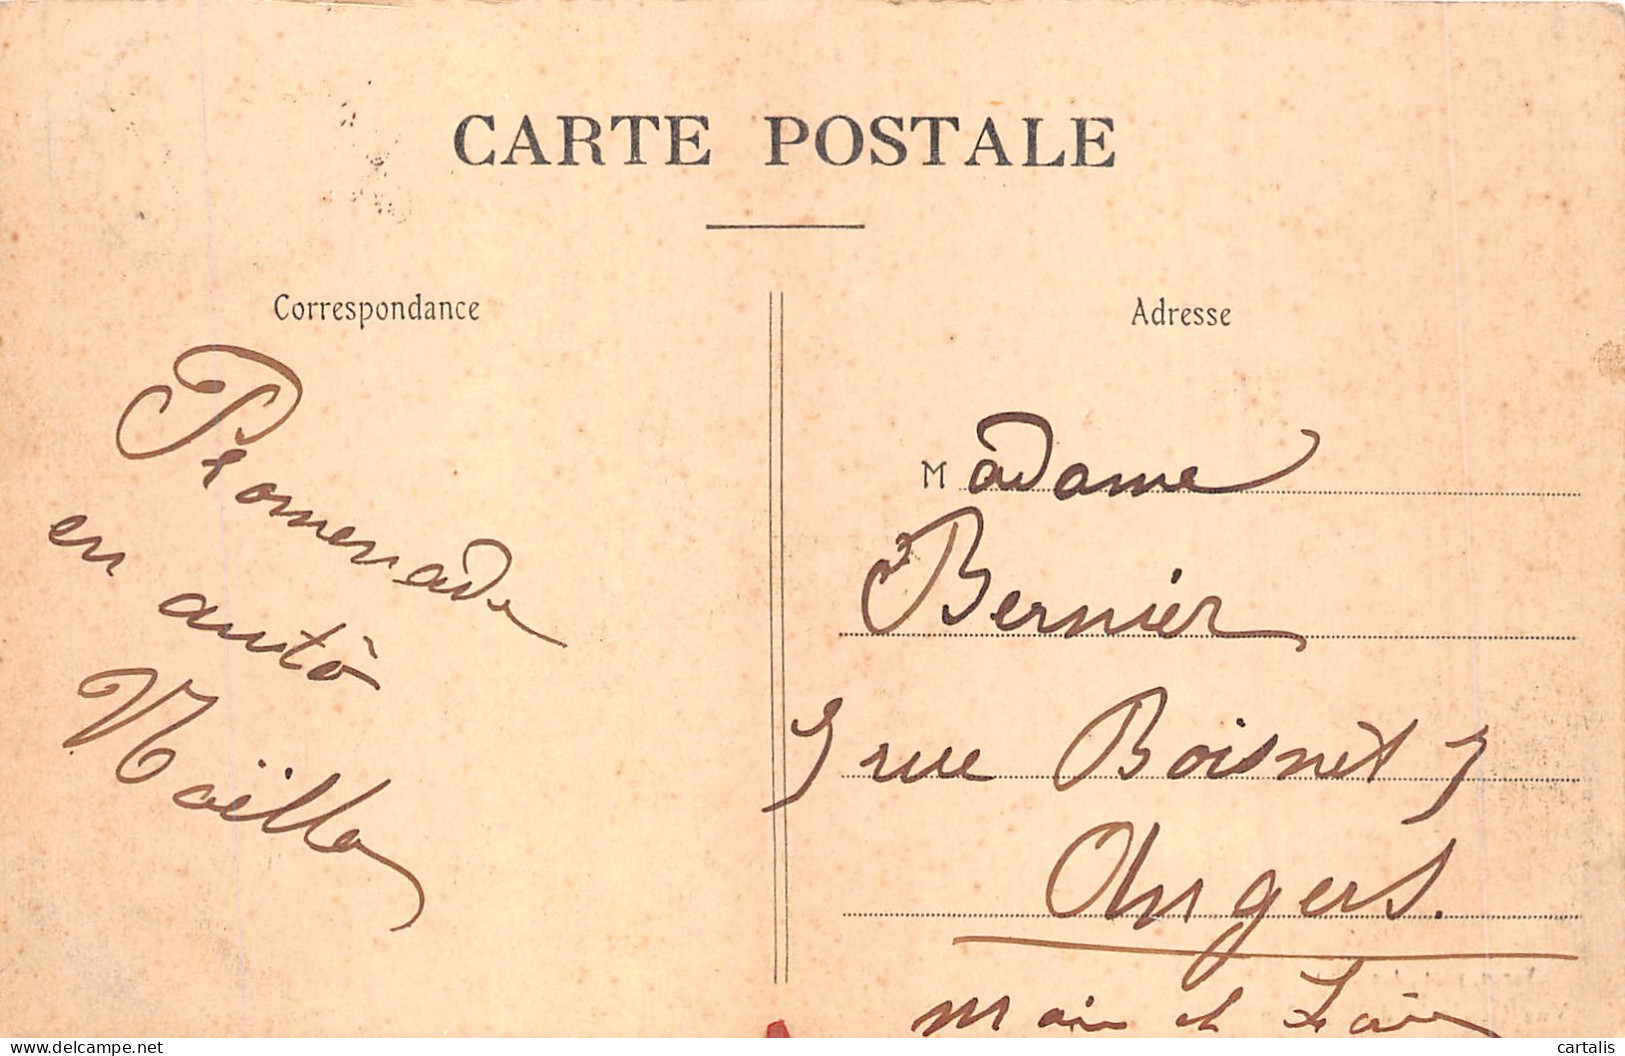 CARTE POSTALE
Correspondance
Promenade
en auto
Adresse
Madame
Bernier
5 rue Boisnet 5
Angers.
Maine et Loire
www.delcampe.net
cartalis